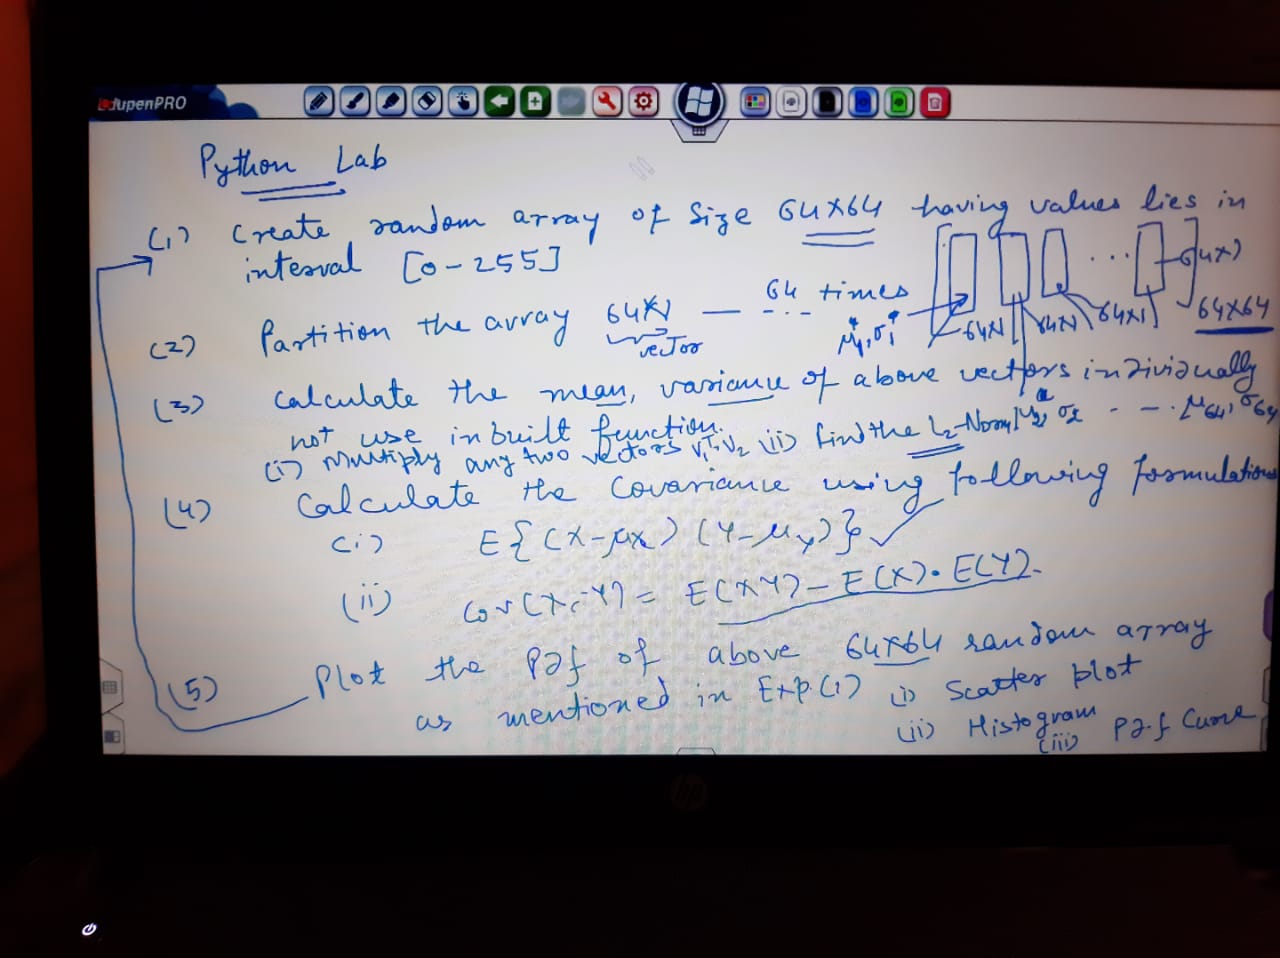 EdupenPRO
Python Lab
(1) Create random array of Size 64X64 having values lies in
interval [0-255]
64X1
(2) Partition the array 64X1 — ... 64 times
vector
μ1, σ1
64X1 64X1 64X1 64X64
(3) Calculate the mean, variance of above vectors individually
not use inbuilt function.
μ2, σ2 - - - μ64, σ64
(i) Multiply any two vectors V1ᵀ, V2 (ii) find the L2-Norm
(4) Calculate the Covariance using following formulations
(i) E{(X-μx) (Y-μy)}
(ii) Cov(X,Y) = E(XY) - E(X). E(Y).
(5) Plot the Pdf of above 64X64 random array
as mentioned in Exp.(1) (i) Scatter plot
(ii) Histogram
(iii) P.d.f Curve
hp